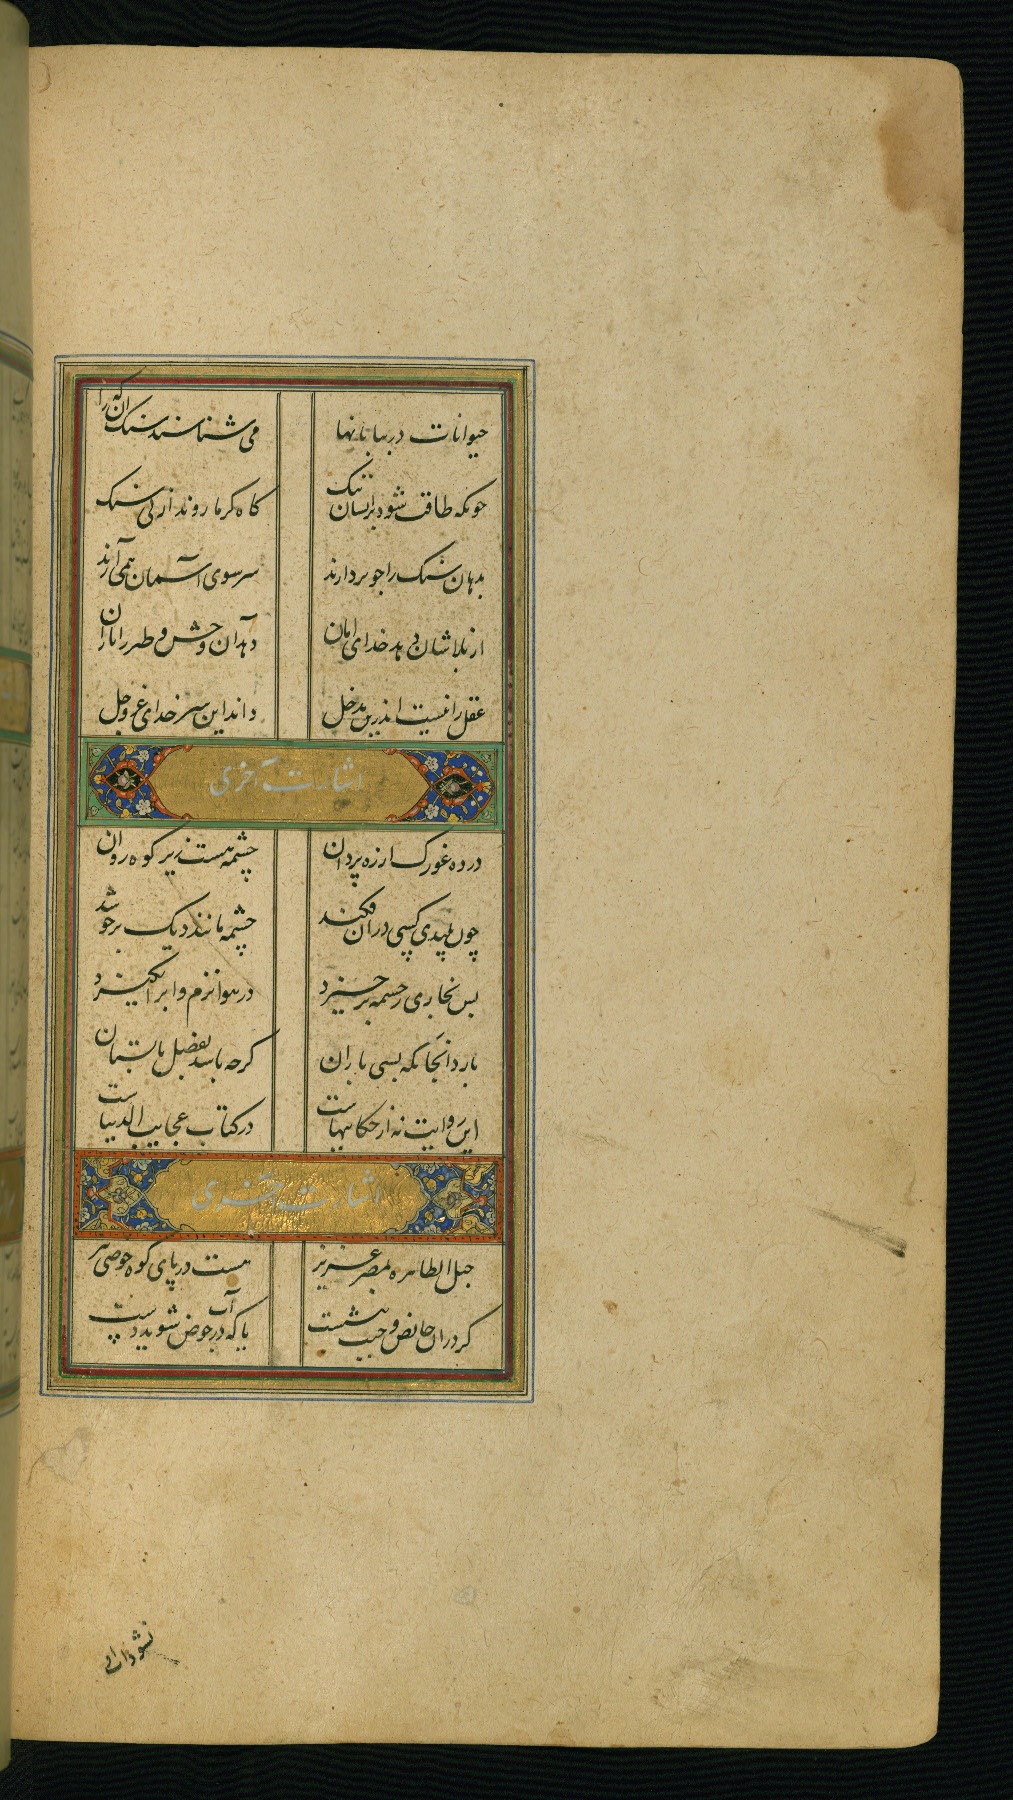 حیوانات در بیابانها
می شناسند سنک ان که را
چونکه طاقت شود بریشان تنک
کاه کرما روند از پی سنک
بدهان سنک را چو بردارند
سر سوی آسمان همی آرند
از بلاشان دهد خدای امان
دهد آن وحش و طیر را باران
عقل را نیست اندرین مدخل
داند این سر خدای عز و جل
اشارت آخری
در ده غورک
چشمه هست زیر کوه روان
چون پلیدی کسی در آن فکند
چشمه مانند دیک بر جوشد
بس بخاری ز چشمه بر خیزد
در هوا نزم و ابر انکیزد
بارد آنجایکه بسی باران
کرچه باشد بفصل تابستان
این روایت نه از حکایتهاست
در کتاب عجایب الدنیاست
اشارت اخری
جبل الطاهره بمصر عزیز
هست در پای کوه حوضی
کر در ان حایض و جنب بنشست
یا که در حوض آب شوید دست
نشود آب